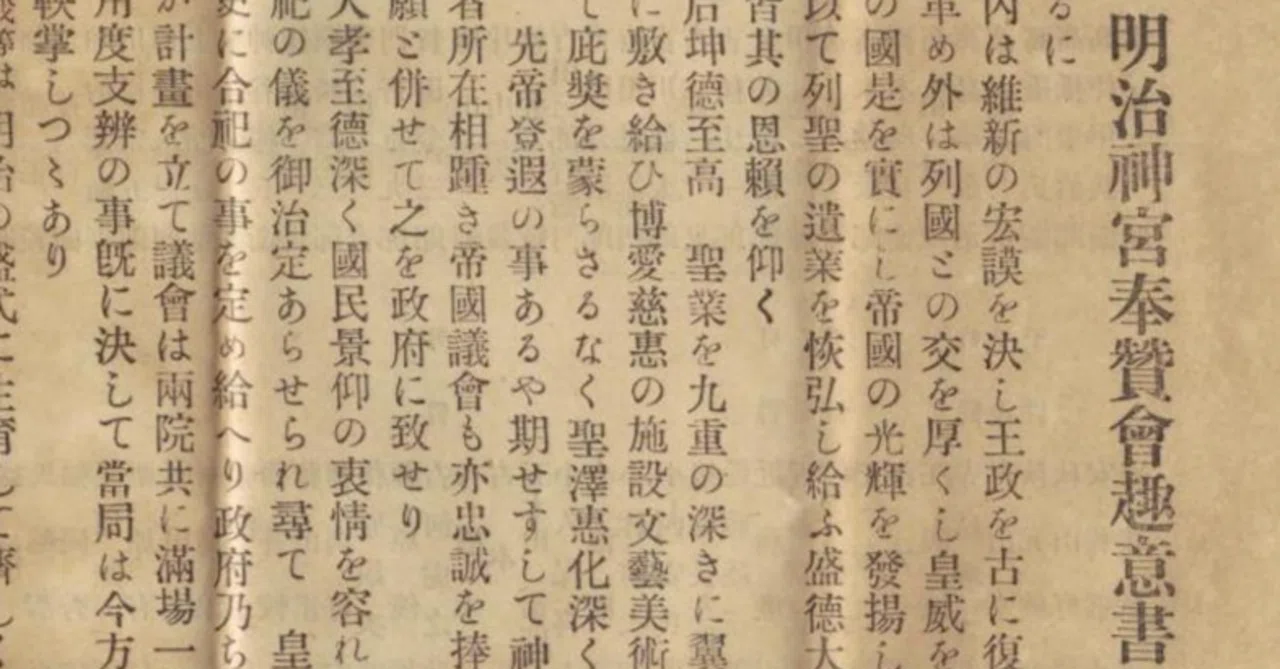 明治神宮奉贊會趣意書
るに
內は維新の宏謨を決し王政を古に復
革め外は列國との交を厚くし皇威を
の國是を實にし帝國の光輝を發揚し
以て列聖の遺業を恢弘し給ふ盛德大
皆其の恩賴を仰く
后坤德至高 聖業を九重の深きに翼
に敷き給ひ博愛慈惠の施設文藝美術
て庇奬を蒙らさるなく聖澤惠化深く
先帝登遐の事あるや期せすして神
者所在相踵き帝國議會も亦忠誠を捧
願と併せて之を政府に致せり
大孝至德深く國民景仰の衷情を容れ
祀の儀を御治定あらせられ尋て 皇
更に合祀の事を定め給へり政府乃ち
か計畫を立て議會は兩院共に滿場一
用度支辨の事既に決して當局は今方
鞅掌しつゝあり
は明治の盛